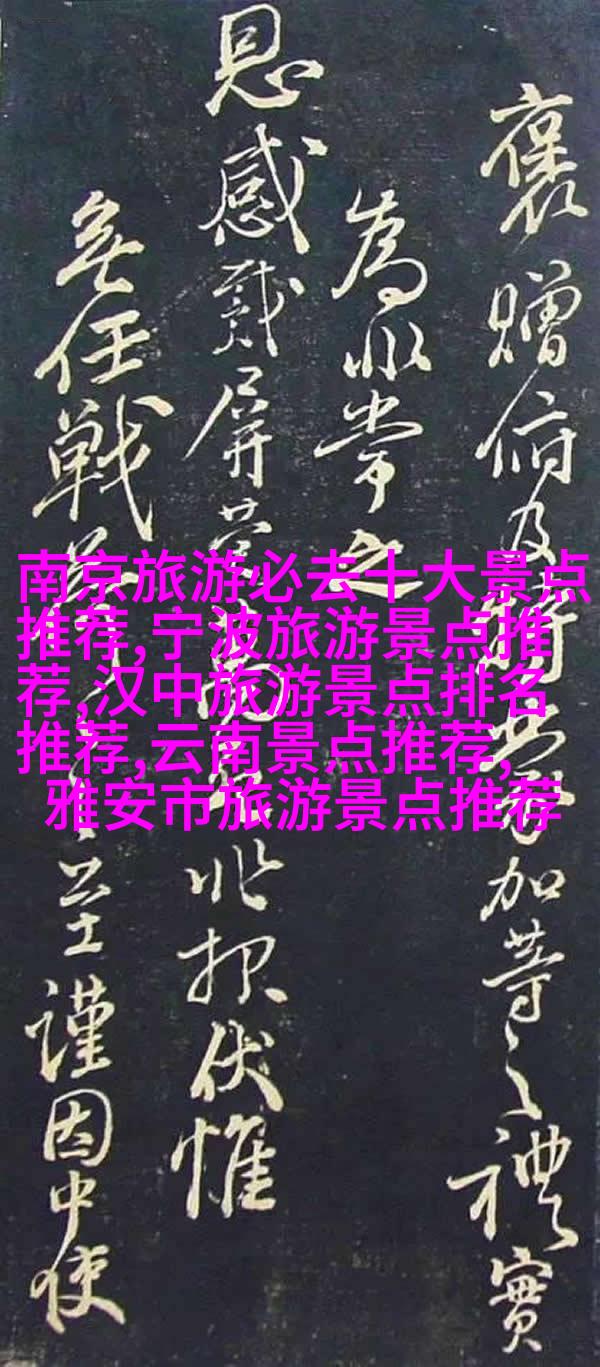 南京旅游必去十大景点
推荐,宁波旅游景点推
荐,汉中旅游景点排名
推荐,云南景点推荐,
雅安市旅游景点推荐
褒贈俯及特加等之禮實
為非常之
恩感戴屏營報伏惟
無任戰至謹因中使